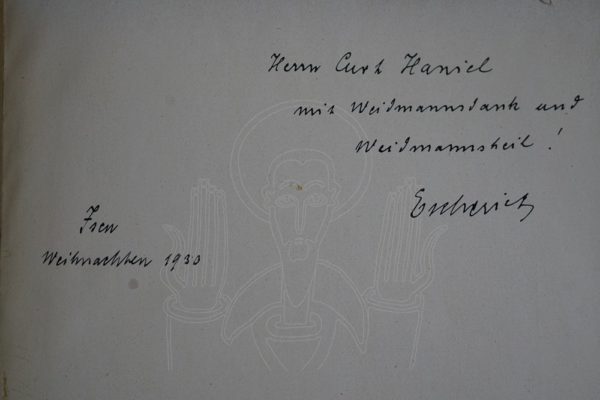 Herrn Curt Haniel
mit Weidmannsdank und
Weidmannsheil!
Escherich
Isen
Weihnachten 1930